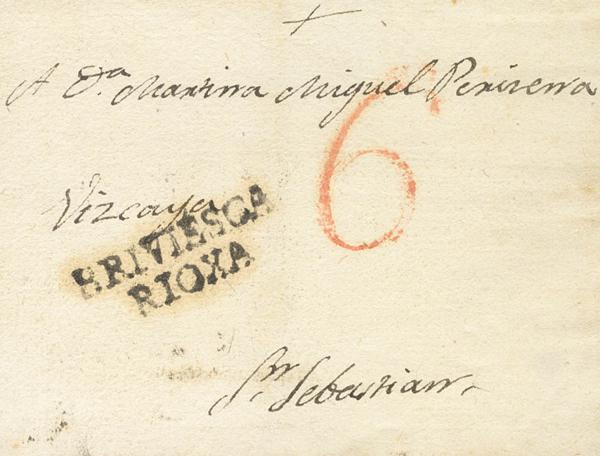 A D.ª Martina Miguel Periserra
6
Vizcaya
BRIVIESCA
RIOXA
Sn Sebastian